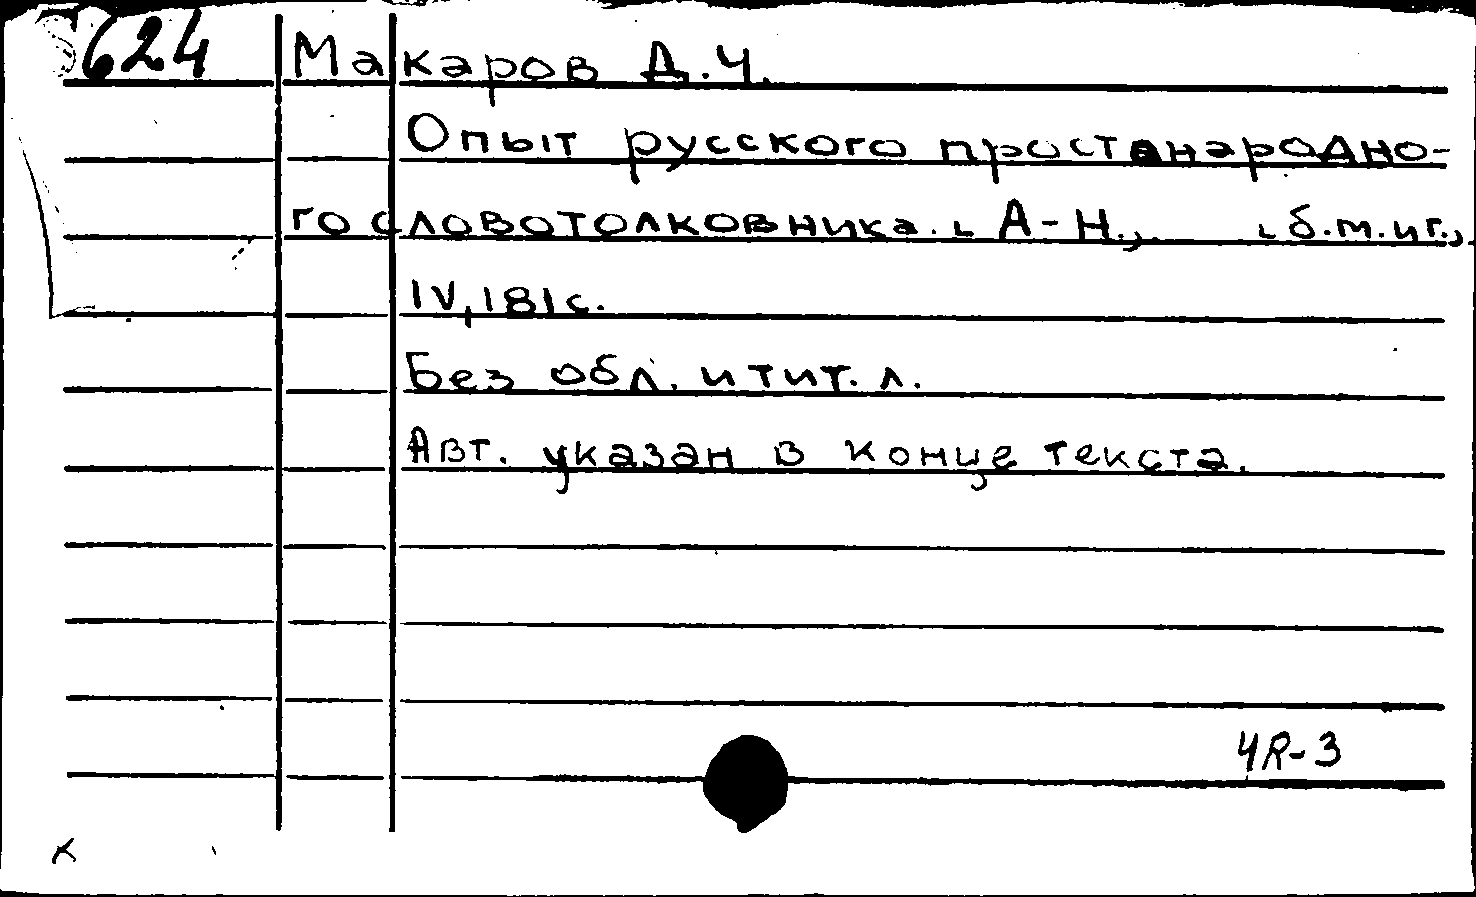 624
Макаров Д.Ч.
Опыт русского простанародно-
го словотолковника. А-Н., б.т.иг.,
IV, 181 с.
Без обл. и тит. л.
Авт. указан в конце текста.
4R-3